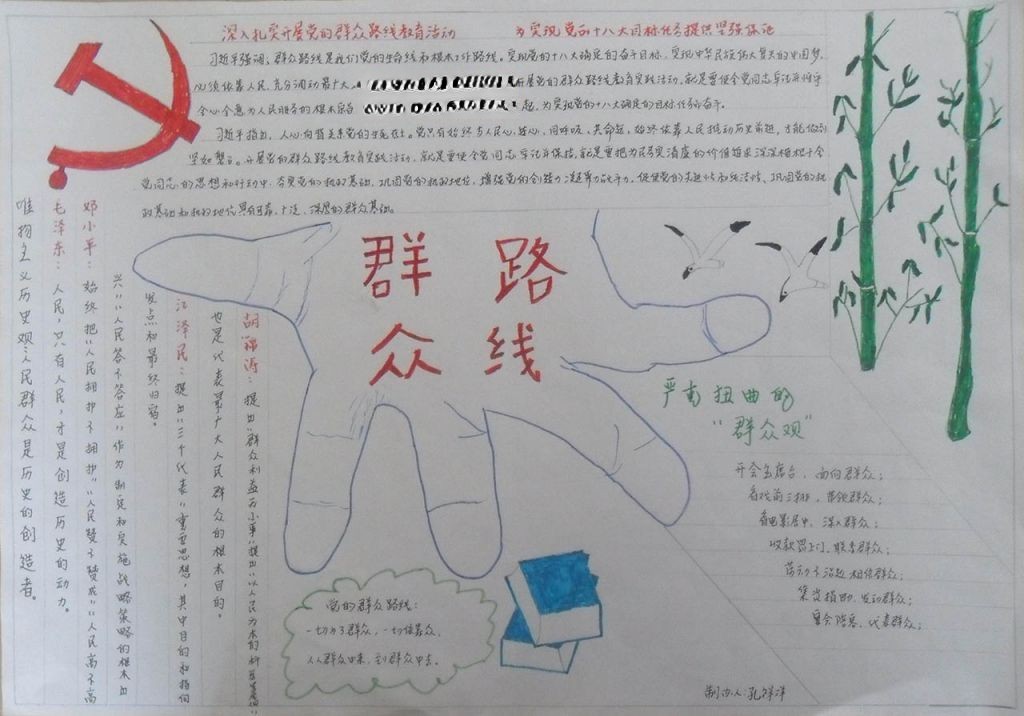 深入扎实开展党的群众路线教育活动 为实现党的十八大目标任务提供坚强保证
习近平强调,群众路线是我们党的生命线和根本工作路线。实现党的十八大确定的奋斗目标,实现中华民族伟大复兴的中国梦,
必须依靠人民,充分调动最广大 开展党的群众路线教育实践活动,就是要使全党同志牢记并恪守
全心全意为人民服务的根本宗旨 起,为实现党的十八大确定的目标任务而奋斗。
习近平指出,人心向背关系党的生死存亡。党只有始终与人民心连心、同呼吸、共命运,始终依靠人民推动历史前进,才能做到
坚如磐石。开展党的群众路线教育实践活动,就是要使全党同志牢记并保持,就是要把为民务实清廉的价值追求深深植根于全
党同志的思想和行动中,夯实党的执政基础,巩固党的执政地位,增强党的创造力凝聚力战斗力,使保党的先进性和纯洁性、巩固党的执
政基础和执政地位具有可靠、广泛、深厚的群众基础。
群众
路线
唯物主义历史观:人民群众是历史的创造者。
毛泽东:人民,只有人民,才是创造历史的动力。
邓小平:始终把"人民拥护不拥护""人民赞不赞成""人民高不高
兴""人民答不答应"作为制定和实施战略策略的根本出
发点和最终归宿。
江泽民:提出"三个代表"重要思想,其中目的和指向
也是代表最广大人民群众的根本目的。
胡锦涛:提出"群众利益无小事"提出"以人民为本的
党的群众路线:
一切为了群众,一切依靠群众,
从群众中来,到群众中去。
严重扭曲的
"群众观"
开会坐席台,面向群众;
看戏前三排,带领群众;
看电影居中,深入群众;
收款要上门,联系群众;
劳动不沾边,相信群众;
集资捐助,发动群众;
宴会陪客,代表群众;
制由人:孔祥洋